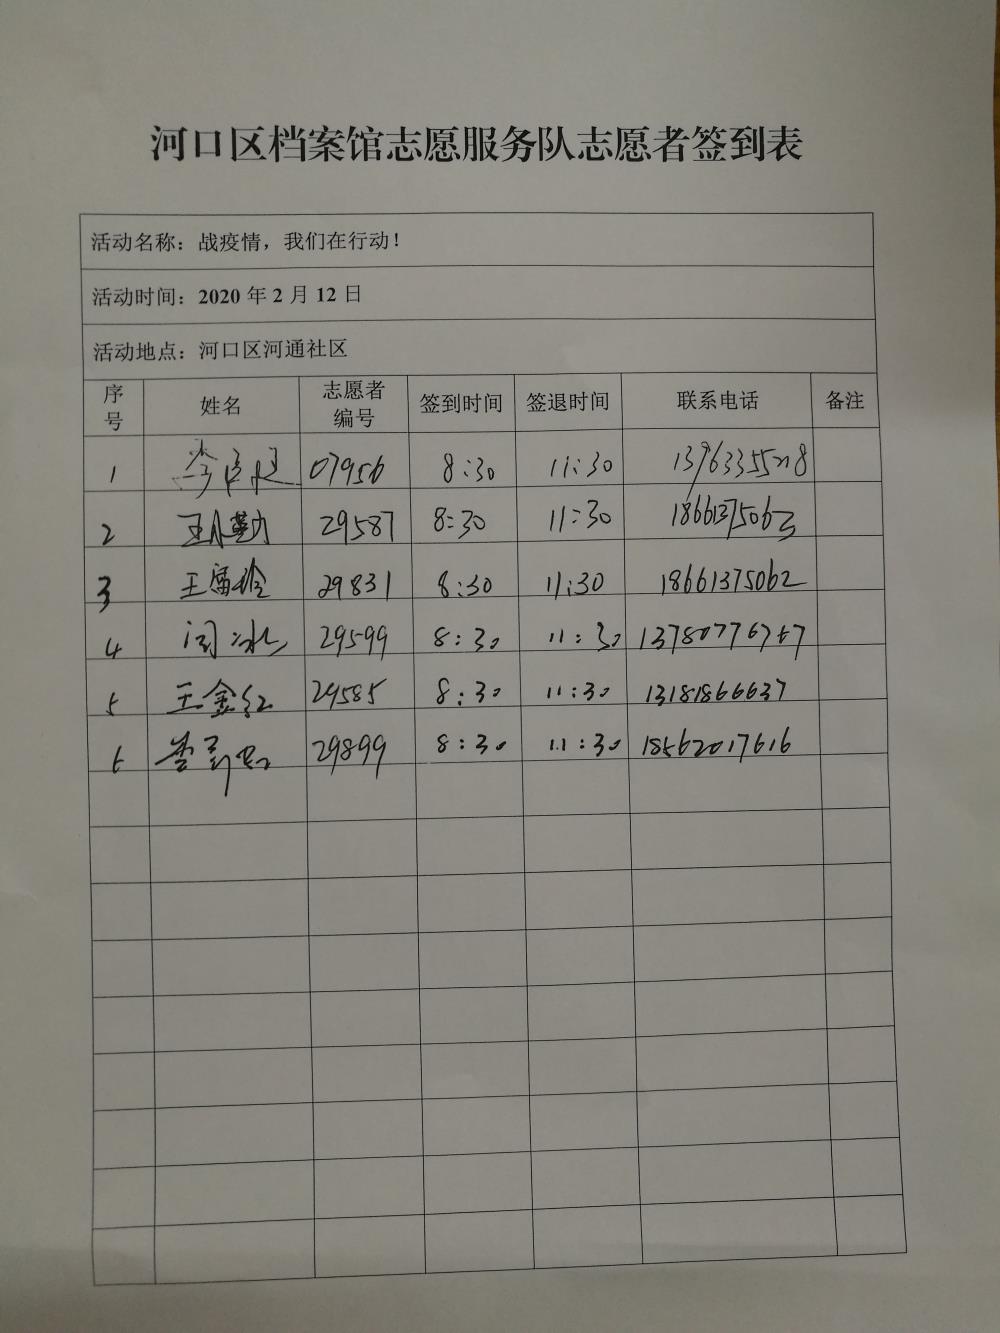 河口区档案馆志愿服务队志愿者签到表
活动名称：战疫情，我们在行动！
活动时间：2020 年 2 月 12 日
活动地点：河口区河通社区
序号 姓名 志愿者编号 签到时间 签退时间 联系电话 备注
1 07956 8:30 11:30
2 29587 8:30 11:30 18661375063
3 王富玲 29831 8:30 11:30 18661375062
4 闫冰 29599 8:30 11:30 13780776767
5 王金红 29585 8:30 11:30 13181866637
6 29899 8:30 11:30 18562017616